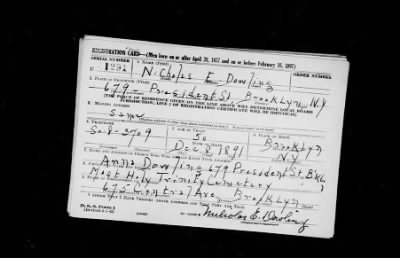 REGISTRATION CARD—(Men born on or after April 28, 1877 and on or before February 16, 1897)
SERIAL NUMBER 1. NAME (Print)
U 1251 Nicholas E Dowling
2. PLACE OF RESIDENCE (Print)
679- President St. Brooklyn, N.Y
[THE PLACE OF RESIDENCE GIVEN ON THE LINE ABOVE WILL DETERMINE LOCAL BOARD
JURISDICTION; LINE 2 OF REGISTRATION CERTIFICATE WILL BE IDENTICAL]
3. MAILING ADDRESS
Same
4. TELEPHONE 5. AGE IN YEARS 6. PLACE OF BIRTH
50 Brooklyn
Dec 1891 N.Y.
7. NAME AND ADDRESS OF PERSON WHO WILL ALWAYS KNOW YOUR ADDRESS
Anna Dowling 679 President St. Bklyn
Holy Trinity Cemetery
675 Central Ave, Brooklyn
I AFFIRM THAT I HAVE VERIFIED ABOVE ANSWERS AND THAT THEY ARE TRUE.
D. S. S. Form 1
Nicholas E. Dowling